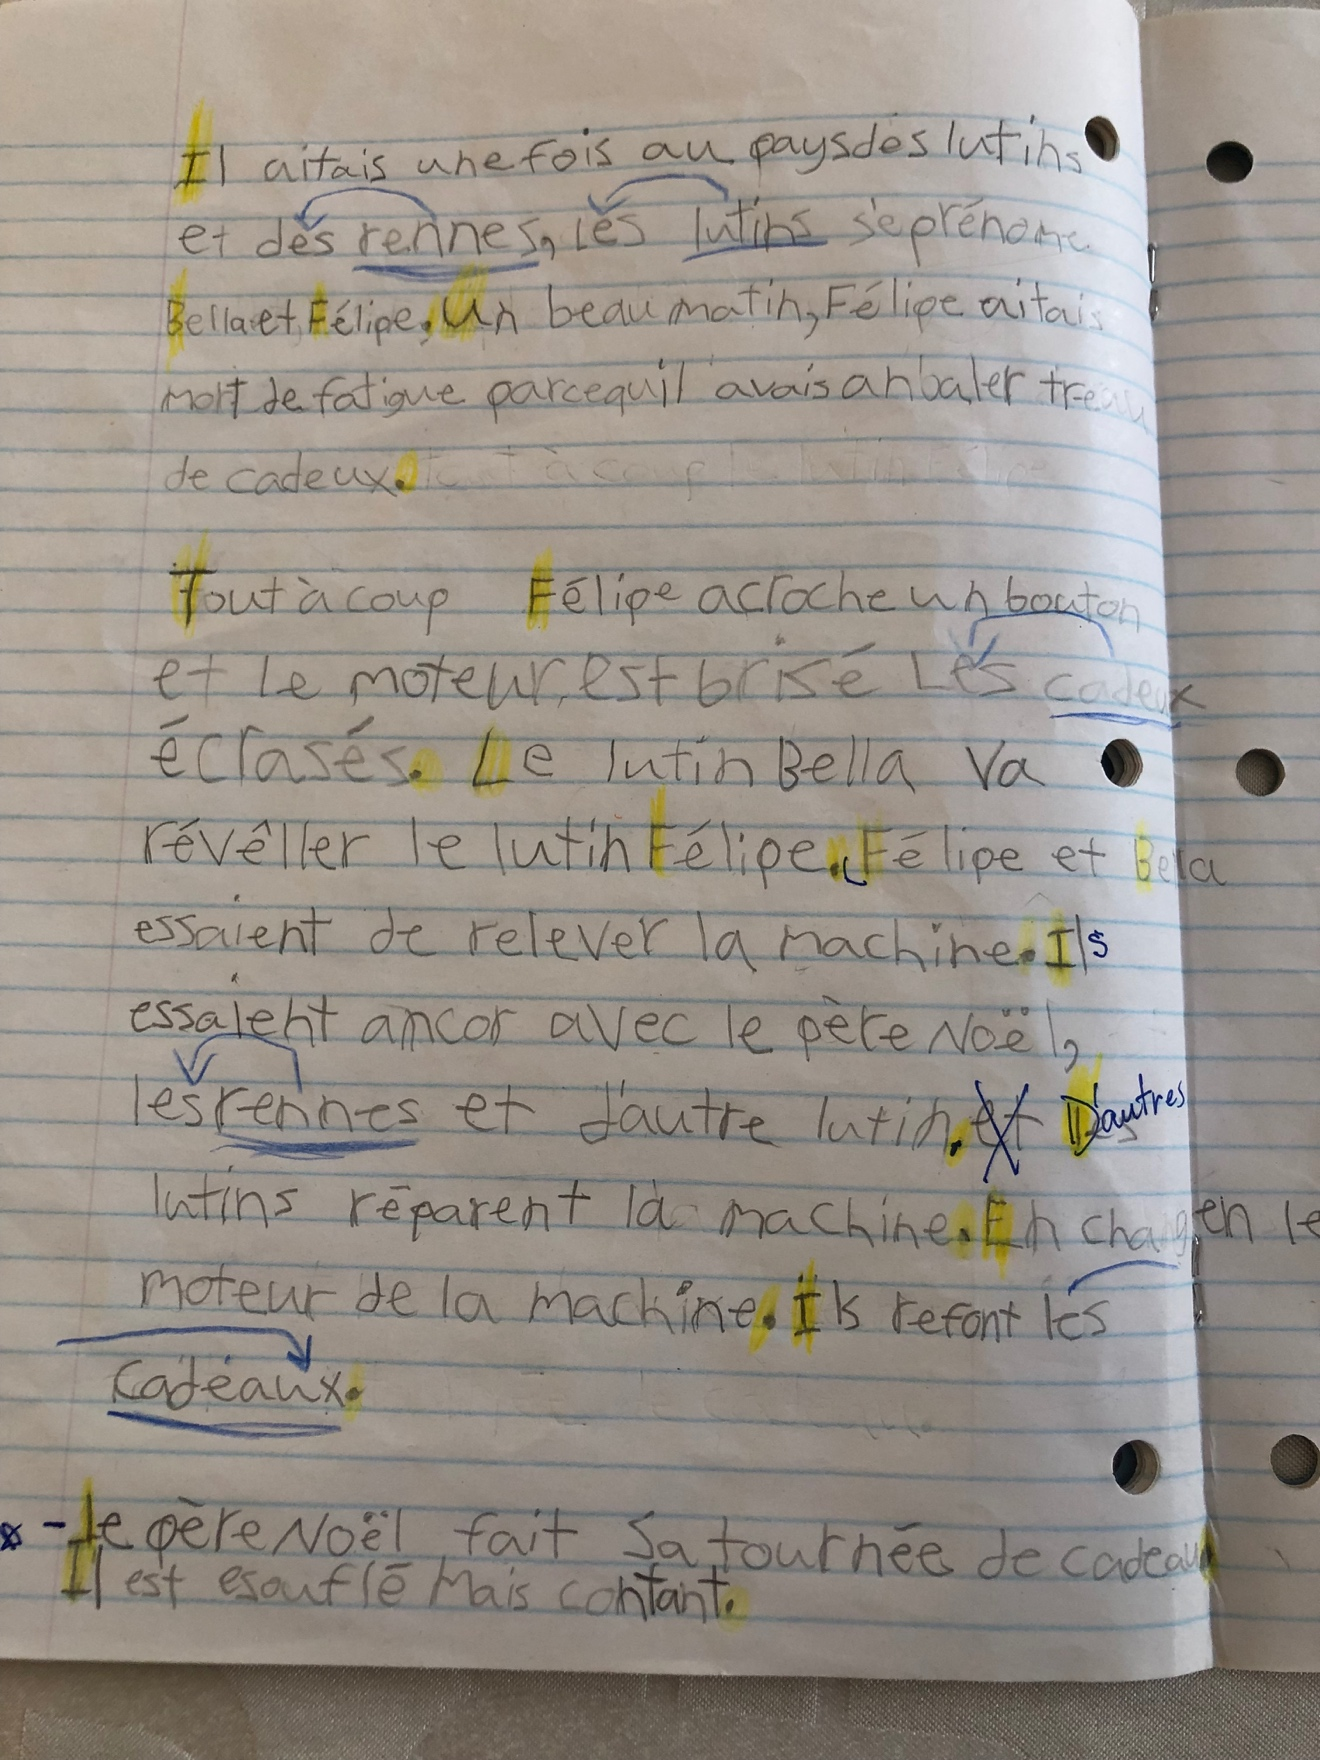 Il aitais une fois au pays des lutins
et des rennes, les lutins se prénome
Bella et Félipe. Un beau matin, Félipe aitais
mort de fatigue parcequil avais anbaler
de cadeux. tout à coup le lutin Félipe
Tout à coup Félipe acroche un bouton
et le moteur est brisé Les cadeux
éclasés. Le lutin Bella va
révêller le lutin Félipe. Félipe et Bella
essaient de relever la machine. Ils
essaient ancor avec le père Noël,
les rennes et d'autre lutin. et D'autres
lutins réparent la machine. En changen le
moteur de la machine. Ils refont les
cadeaux.
- Le père Noël fait sa tournée de cadeau
Il est esouflé Mais contant.